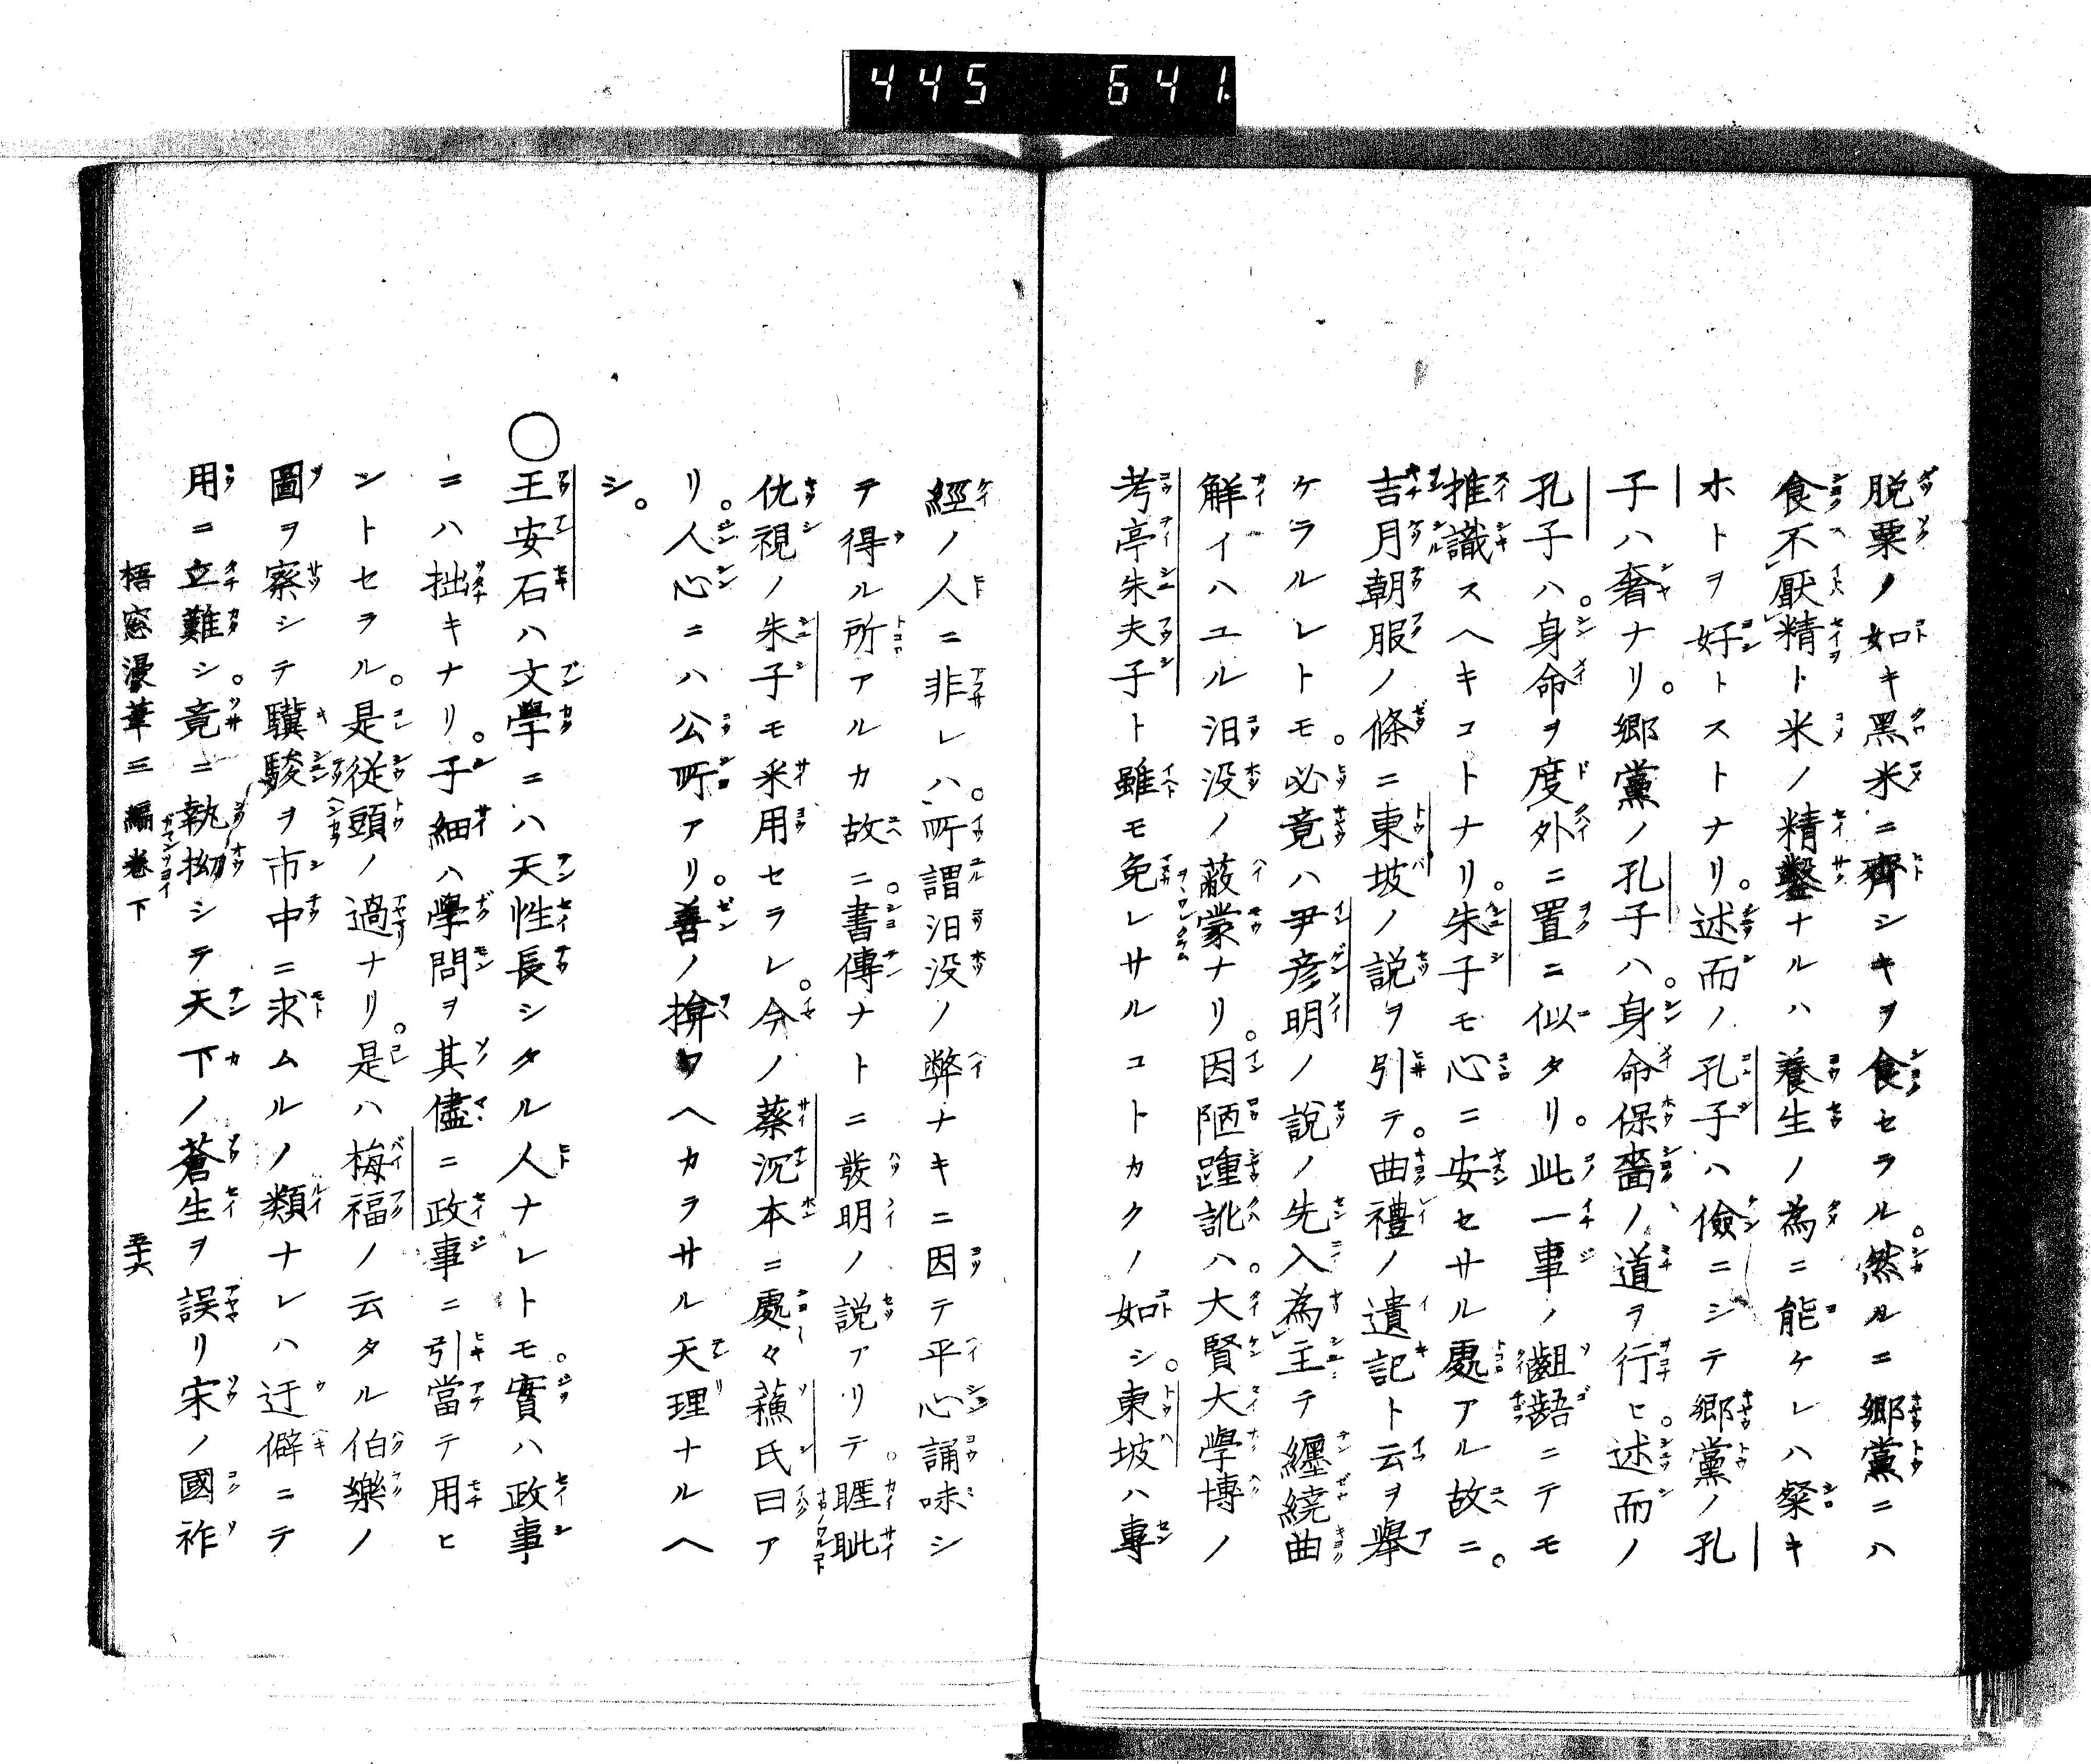 445 641.
脱粟ノ如キ黑米ニ齊シキヲ食セラル。然ルニ郷黨ニハ
食不厭精ト米ノ精鑿ナルハ養生ノ為ニ能ケレハ粲キ
ホトヲ好トストナリ。述而ノ孔子ハ儉ニシテ郷黨ノ孔
子ハ奢ナリ。郷黨ノ孔子ハ。身命保嗇ノ道ヲ行ヒ。述而ノ
孔子ハ。身命ヲ度外ニ置ニ似タリ。此一事ノ齟齬ニテモ
推識スヘキコトナリ。朱子モ心ニ安セサル處アル故ニ。
吉月朝服ノ條ニ東坡ノ説ヲ引テ。曲禮ノ遺記ト云ヲ擧
ケラルレトモ。必竟ハ尹彦明ノ說ノ先入為主テ纒繞曲
解イハユル汨没ノ蔽蒙ナリ。因陋踵訛ハ。大賢大學博ノ
考亭朱夫子ト雖モ免レサルコトカクノ如シ。東坡ハ專
經ノ人ニ非レハ。所謂汨没ノ弊ナキニ因テ平心誦味シ
テ得ル所アルカ故ニ。書傳ナトニ發明ノ説アリテ。睚眦
仇視ノ朱子モ采用セラレ。今ノ蔡沉本ニ處々蘓氏曰ア
リ。人心ニハ公所アリ。善ノ揜フヘカラサル天理ナルヘ
シ。
○王安石ハ文學ニハ天性長シタル人ナレトモ。實ハ政事
ニハ拙キナリ。子細ハ學問ヲ其儘ニ政事ニ引當テ用ヒ
ントセラル。是従頭ノ過ナリ。是ハ梅福ノ云タル伯樂ノ
圖ヲ察シテ驥駿ヲ市中ニ求ムルノ類ナレハ迂僻ニテ
用ニ立難シ。竟ニ執拗シテ天下ノ蒼生ヲ誤リ宋ノ國祚
梧窓漫筆三編卷下 五十六